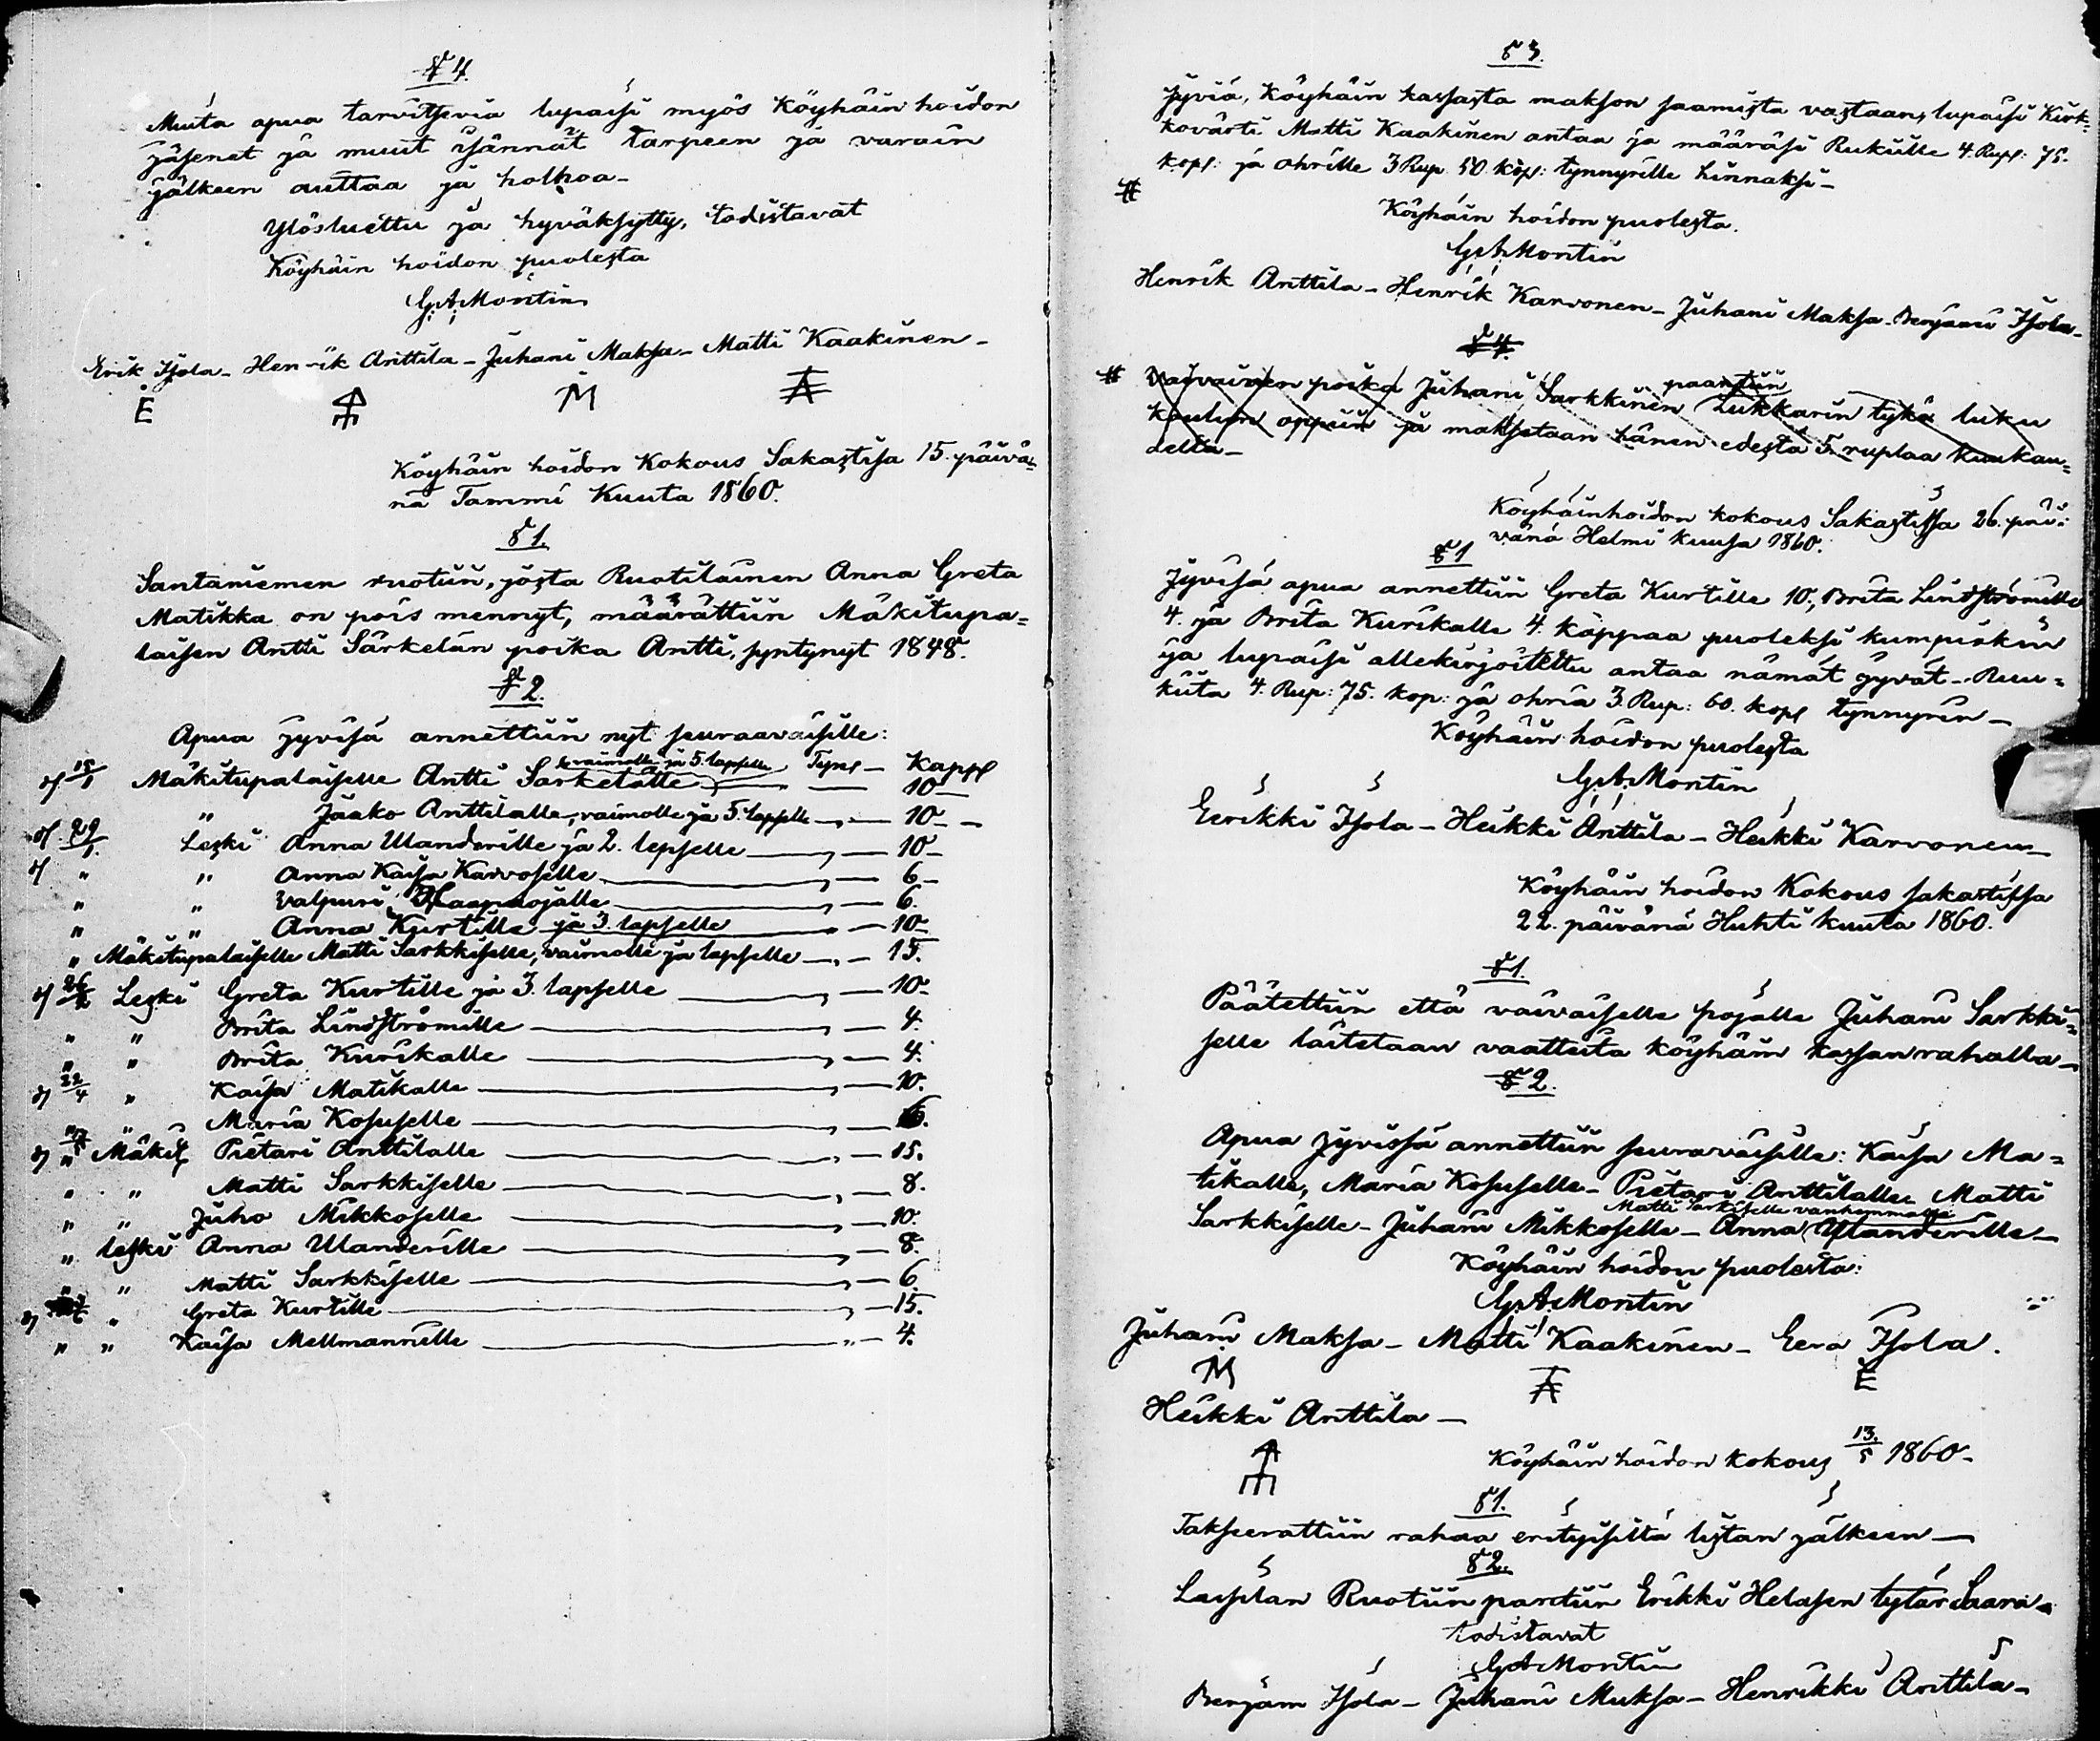 § 4.
Muita apua tarvitsevia lupaisi myös Köyhäin hoidon
jäsenet ja muut isännät tarpeen ja varain
jälkeen auttaa ja holhoa-
Ylösluettu ja hyväksytty, todistavat
Köyhäin hoidon puolesta
G.A. Montin
Erik Isola - Henrik Anttila - Juhani Maksa - Matti Kaakinen -
E M
Köyhäin hoidon Kokous Sakastisa 15. päivä-
nä Tammi Kuuta 1860.
§ 1.
Santaniemen ruotiin, josta Ruotilainen Anna Greta
Matikka on pois mennyt, määrättiin Mäkitupa=
laisen Antti Särkelän poika Antti, syntynyt 1848.
§ 2.
Apua jyvisä annettiin nyt seuraavaisille:
vaimolle ja 5. lapselle Tyn: - Kapp:
d/ 15/1 Mäkitupalaiselle Antti Sarkelälle — 10 —
" Jaako Anttilalle, vaimolle ja 5 lapselle — " — 10 —
d/ 29/1. Leski Anna Ulanderille ja 2. lapselle — " — 10 —
d/ " " Anna Kaisa Karvoselle — " — 6 —
" " Valpuri Haapaojalle — " — 6.
" " Anna Kurtille ja 3. lapselle — " — 10 —
" Mäkitupalaiselle Matti Sarkkiselle, vaimolle ja lapselle — " — 15.
d/ 26/2 Leski Greta Kurtille ja 3. lapselle — " — 10 —
" " Brita Lindströmille — " — 4.
" " Brita Kurikalle — " — 4.
d/ 22/4 " Kaisa Matikalle — " — 10.
" " Maria Kosuselle — " — 6.
d/ " Mäkit: Pietari Anttilalle — " — 15.
" " Matti Sarkkiselle — " — 8.
" " Juho Mikkoselle — " — 10.
" leski Anna Ulanderille — " — 8.
" " Matti Sarkkiselle — " — 6
d/ " Greta Kurtille — " — 15.
" " Kaisa Mellmannille — " — 4.
§ 3.
Jyviä, Köyhäin kassasta makson saamista vastaan, lupaisi Kirk=
kovärti Matti Kaakinen antaa ja määräsi Rukiille 4. Rup: 75.
kop: ja ohrille 3 Rup. 50 kop: tynnyrille hinnaksi -
#
Köyhäin hoidon puolesta.
G.A. Montin
Henrik Anttila - Henrik Karvonen - Juhani Maksa - Benjami Isola -
§ 4.
paantiin
# Vaivainen poika Juhani Sarkkinen Lukkarin tykö luku
koulun oppiin ja maksetaan hänen edestä 5. ruplaa kuukau=
delta -
Köyhäinhoidon kokous Sakastissa 26. päi=
vänä Helmi kuusa 1860.
§ 1
Jyvisä apua annettiin Greta Kurtille 10., Brita Lindströmille
4. ja Brita Kurikalle 4. kappaa puoleksi kumpiakin
ja lupaisi allekirjoitettu antaa nämät jyvät - Ruu=
kiita 4. Rup: 75. kop: ja ohria 3. Rup: 60. kop: tynnyrin -
Köyhäin hoidon puolesta
G.A. Montin
Eerikki Isola - Heikki Anttila - Heikki Karvonen -
Köyhäin hoidon Kokous sakastissa
22. päivänä Huhti kuuta 1860.
§ 1.
Päätettiin että vaivaiselle pojalle Juhani Sarkki=
selle laitetaan vaatteita köyhäin kassan rahalla -
§ 2.
Apua jyvissä annettiin seuravaisille: Kaisa Ma=
tikalle, Maria Kosuselle - Pietari Anttilalle - Matti
Matti Sarkiselle vanhemmalle
Sarkkiselle - Juhani Mikkoselle - Anna Ulanderille -
Köyhäin hoidon puolesta:
G.A. Montin
Juhani Maksa - Matti Kaakinen - Eera Isola.
M E
Heikki Anttila -
Köyhäin hoidon kokous 13./5 1860 -
§ 1.
Takseerattiin rahaa erityisiltä listan jälkeen —
§ 2.
Ruotiin pantiin Erikki Helasen tytär Saara -
todistavat
G A Montin
Benjam Isola - Juhani Maksa - Henrikki Anttila -